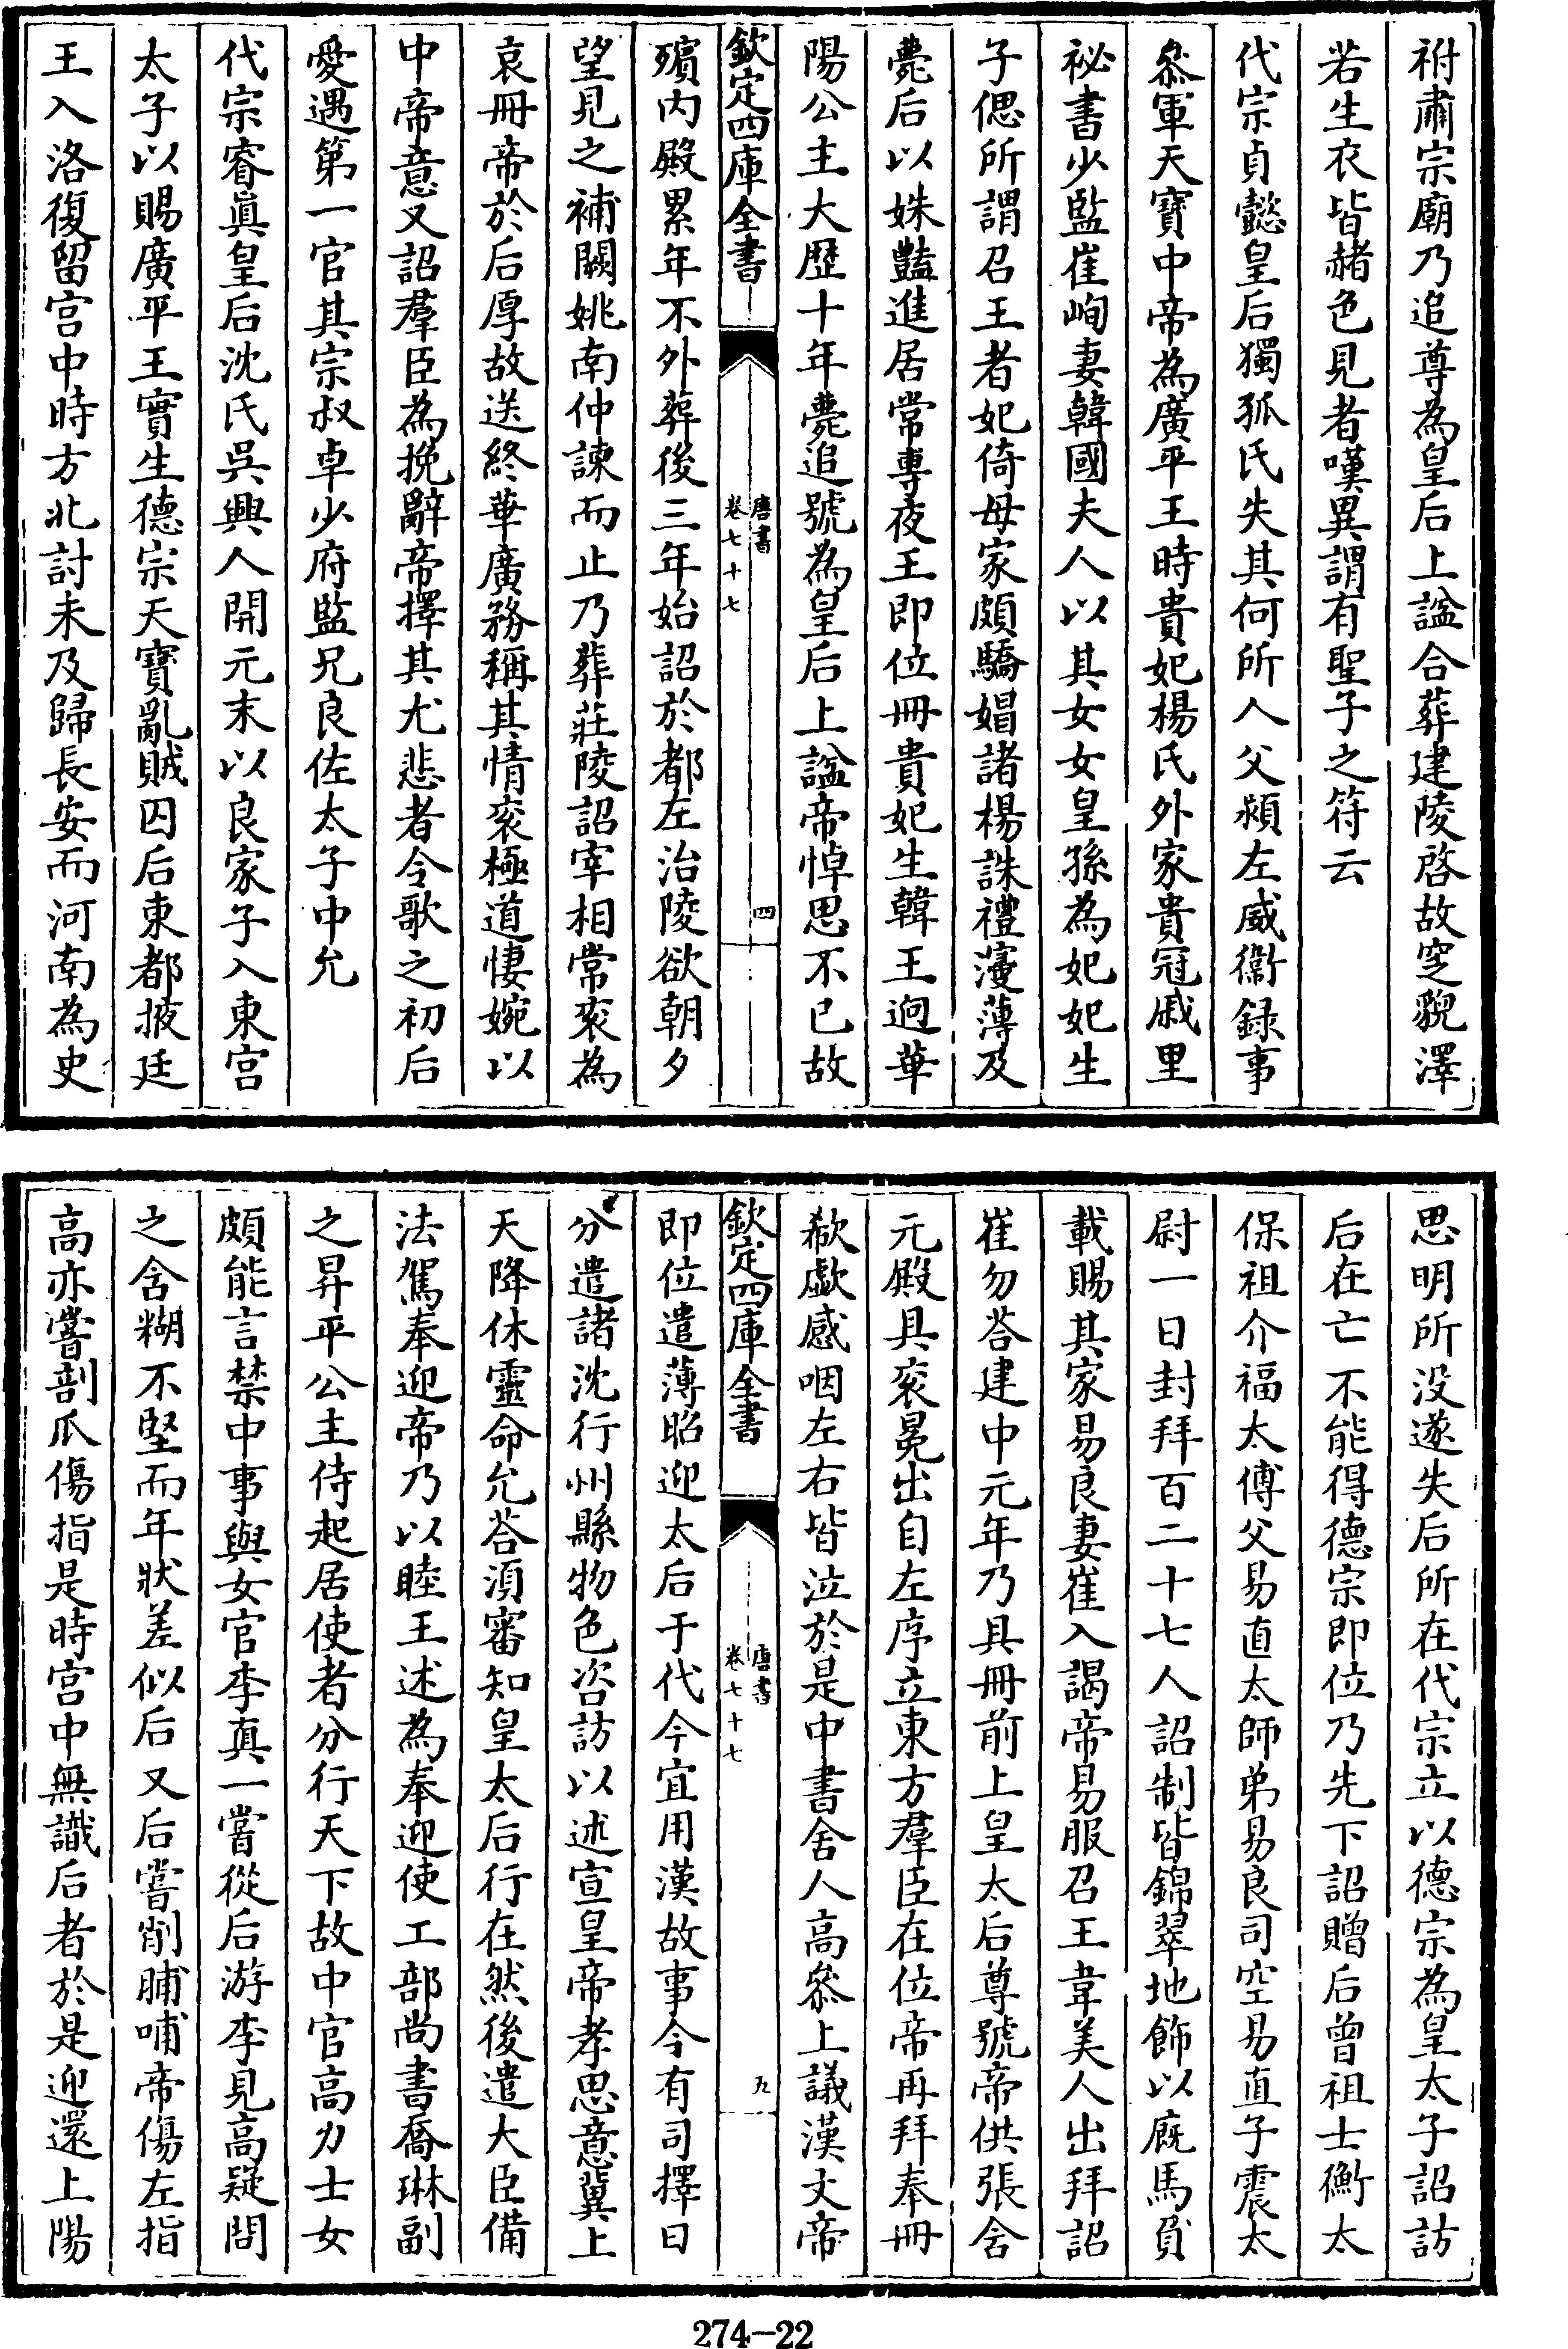 祔肅宗廟乃追尊為皇后上諡合葬建陵啓故窆貌澤
若生衣皆赭色見者嘆異謂有聖子之符云
代宗貞懿皇后獨狐氏失其何所人父熲左威衛録事
叅軍天寶中帝為廣平王時貴妃楊氏外家貴冠戚里
祕書少監崔峋妻韓國夫人以其女女皇孫為妃妃生
子偲所謂召王者妃倚母家頗驕媢諸楊誅禮寖薄及
薨后以姝豔進居常專夜王即位冊貴妃生韓王迥華
陽公主大歴十年薨追號為皇后上諡帝悼思不已故
欽定四庫全書
唐書
卷七十七
四
殯内殿累年不外葬後三年始詔於都左治陵欲朝夕
望見之補闕姚南仲諫而止乃葬莊陵詔宰相常衮為
哀冊帝於后厚故送終華廣務稱其情衮極道悽婉以
中帝意又詔羣臣為挽辭帝擇其尤悲者令歌之初后
愛遇第一官其宗叔卓少府監兄良佐太子中允
代宗睿眞皇后沈氏吳興人開元末以良家子入東宫
太子以賜廣平王實生德宗天寶亂賊囚后東都掖廷
王入洛復留宫中時方北討未及歸長安而河南為史
思明所没遂失后所在代宗立以德宗為皇太子詔訪
后在亡不能得德宗即位乃先下詔贈后曾祖士衡太
保祖介福太傅父易直太師弟易良司空易直子震太
尉一日封拜百二十七人詔制皆錦翠地飾以廐馬負
載賜其家易良妻崔入謁帝易服召王韋美人出拜詔
崔勿荅建中元年乃具冊前上皇太后尊號帝供張含
元殿具衮冕出自左序立東方羣臣在位帝再拜奉冊
欷歔感咽左右皆泣於是中書舍人高叅上議漢文帝
欽定四庫全書
唐書
卷七十七
五
即位遣薄昭迎太后于代今宜用漢故事令有司擇日
分遣諸沈行州縣物色咨訪以述宣皇帝孝思意冀上
天降休靈命允荅須審知皇太后行在然後遣大臣備
法駕奉迎帝乃以睦王述為奉迎使工部尚書喬琳副
之昇平公主侍起居使者分行天下故中官高力士女
頗能言禁中事與女官李真一嘗從后游李見高疑問
之含糊不堅而年狀差似后又后嘗削脯哺帝傷左指
高亦嘗剖瓜傷指是時宫中無識后者於是迎還上陽
274-22